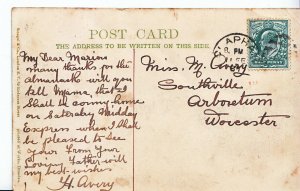 POST CARD
THE ADDRESS TO BE WRITTEN ON THIS SIDE.
My Dear Marion
many thanks for the
almanacks will you
tell Mama, that I
shall be coming home
on Saturday Midday
Express when I shall
be pleased to see
you. From your
Loving Father will
my best wishes
H. Avery
Miss M. Avery
Southville
Arboretum
Worcester